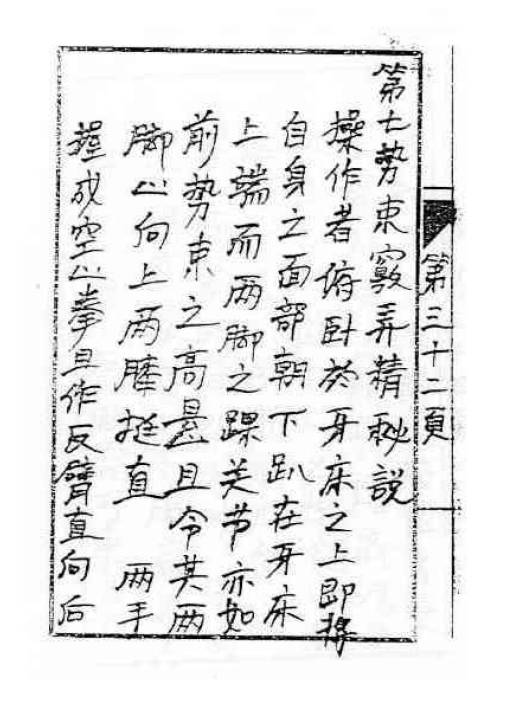 第三十二頁
第七勢束竅弄精秘説
操作者俯卧於牙床之上即将
自身之面部朝下趴在牙床
上端而两脚之踝关节亦如
前势束之高悬且令其两
脚心向上两膝挺直 两手
握成空心拳且作反臂直向后